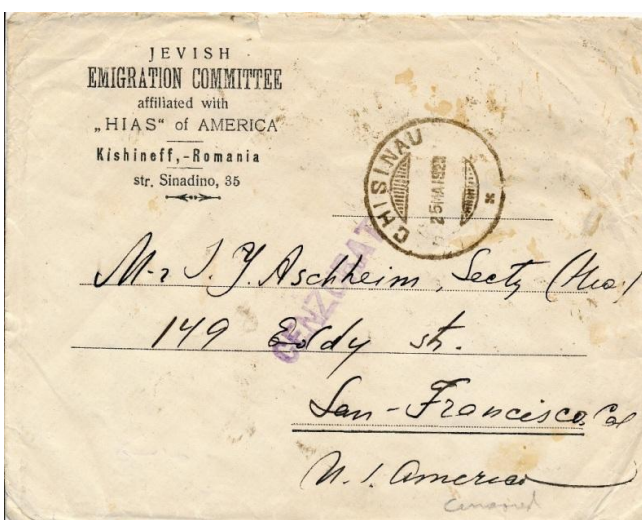 JEVISH
EMIGRATION COMMITTEE
affiliated with
„HIAS“ of AMERICA
Kishineff,-Romania
str. Sinadino, 35
CHISINAU
25 MAI 192
CENZURAT
M-r I. Y. Aschheim, Secty
149 Eddy str.
San-Francisco. Cal
U. S. America
Censored